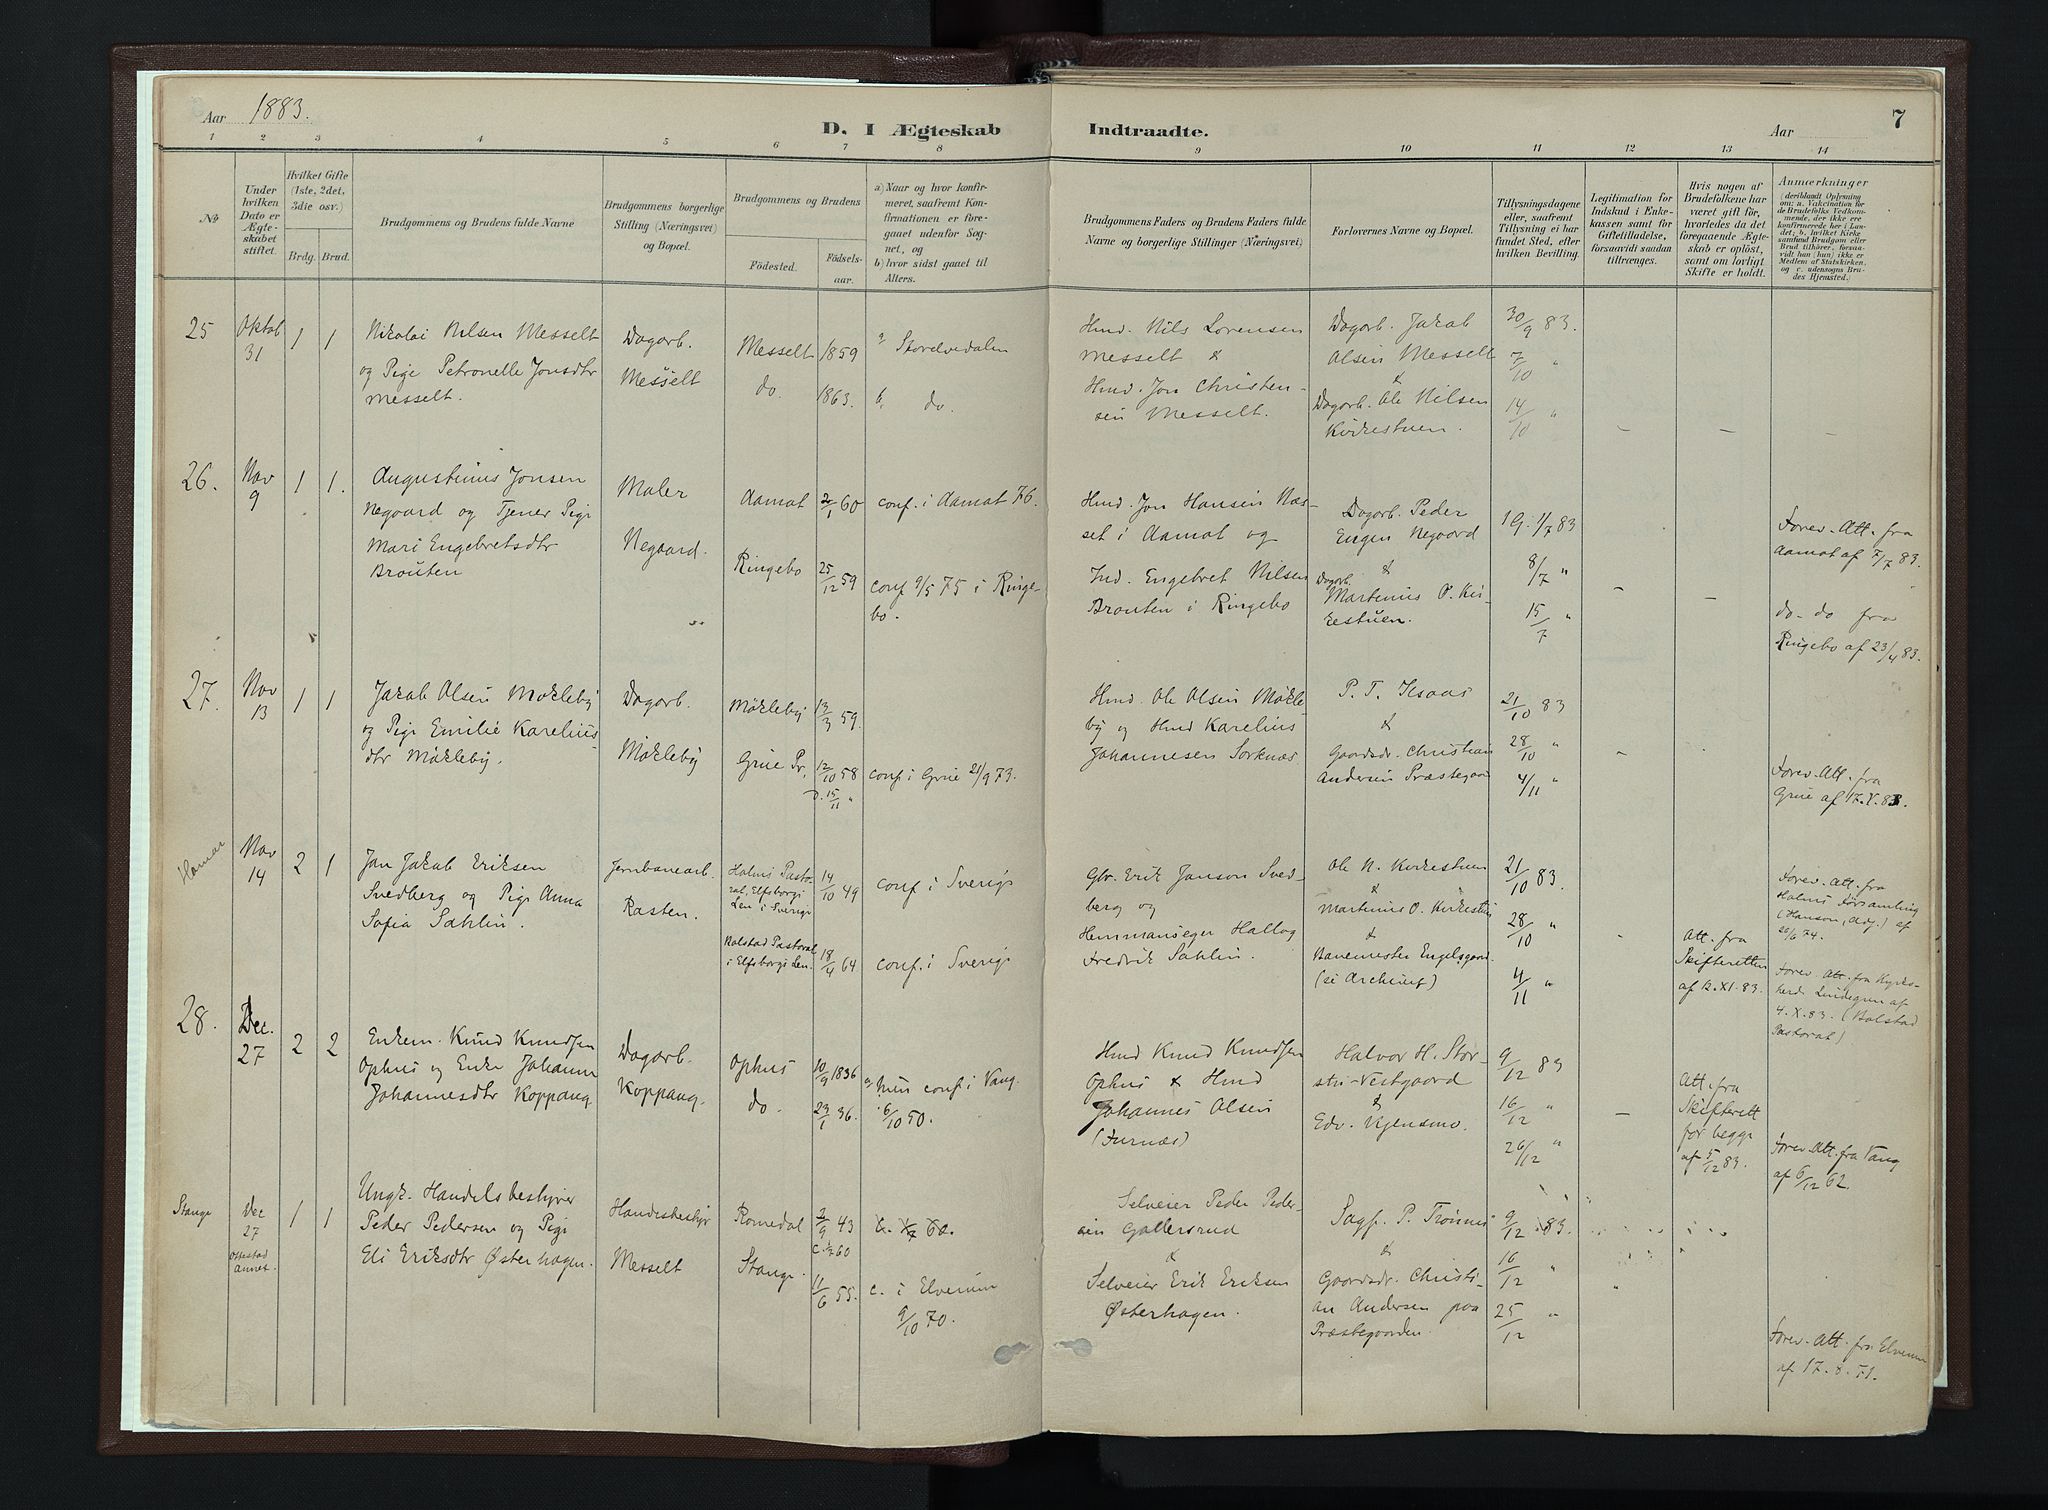 Aar 1883.
D. I Ægteskab
Indtraadte.
Aar
7
1 2 3 4 5 6 7 8
9 10 11 12 13 14
No
Under hvilken Dato er Ægteskabet stiftet.
Hvilket Gifte (1ste, 2det, 3die osv.)
Brdg. Brud.
Brudgommens og Brudens fulde Navne
Brudgommens borgerlige Stilling (Næringsvei) og Bopæl.
Brudgommens og Brudens
Födested.
Födselsaar.
a) Naar og hvor konfirmeret, saafremt Konfirmationen er foregaaet udenfor Sognet, og
b) hvor sidst gaaet til Alters.
Brudgommens Faders og Brudens Faders fulde Navne og borgerlige Stillinger (Næringsvei)
Forlovernes Navne og Bopæl.
Tillysningsdagene eller, saafremt Tillysning ei har fundet Sted, efter hvilken Bevilling.
Legitimation for Indskud i Enkekassen samt for Giftetilladelse, forsaavidt saadan tiltrænges.
Hvis nogen af Brudefolkene har været gift før, hvorledes da det foregaaende Ægteskab er oplöst, samt om lovligt Skifte er holdt.
Anmærkninger
(deriblandt Oplysning om: a. Vaccination for de Brudefolks Vedkommende, der ikke ere konfirmerede her i Landet; b. hvilket Kirkesamfund Brudgom eller Brud tilhører, forsaavidt han (hun) ikke er Medlem af Statskirken, og c. udensogns Brudes Hjemsted.)
25
Oktob
31
1 1
Nikolai Nilsen Messelt
og Pige Petronelle Jonsdtr
Messelt.
Dagarb.
Messelt
Messelt
do.
1859
1863.
a, Storelvedalen
b. do.
Hmd. Nils Lorensen
Messelt &
Hmd. Jon Christen-
sen Messelt.
Dagarb. Jakob
Olsen Messelt
&
Dagarb. Ole Nilsen
Kirkestuen.
30/9 83.
7/10 "
14/10 "
26.
Nov
9
1 1.
Augustinus Jonsen
Negaard og Tjener Pige
Mari Engebretsdtr
Brouten
Maler
Negaard.
Aamot
Ringebo
2/1 60
25/12 59
conf. i Aamot 76.
conf 9/5 75 i Ringe-
bo.
Hmd. Jon Hansen Næs-
set i Aamot og
Ind. Engebret Nilsen
Brouten i Ringebo
Dagarb. Peder
Engen Negaard
&
Dagarb.
Martinius O. Kir-
kestuen.
1G. 1/7 83
8/7 "
15/7 "
Forev. Att. fra
Aamot af 7/7 83.
do. do fra
Ringebo af 23/4 83.
27.
Nov
13
1 1
Jakob Olsen Møkleby
og Pige Emilie Karelius-
dtr Møkleby.
Dagarb.
Møkleby
Møkleby
Grue Pr.
13/3 59.
12/10 58
D. 15/11 "
conf. i Grue 21/9 73.
Hmd. Ole Olsen Møkle-
by og Hmd Karelius
Johannesen Sorknæs.
P. T. Isaas
&
Gaardsdr. Christian
Andersen Præstegaar
21/10 83
28/10 "
4/11 "
Forev. Att. fra
Grue af 17. X. 83.
Hamar
Nov
14
2 1
Jan Jakob Eriksen
Svedberg og Pige Anna
Sofia Sahlin.
Jernbanearb.
Rasten.
Holms Pasto-
rat, Elfsborgs
Len i Sverige
Bolstad Pastorat
i Elfsborgs Len.
14/10 49
18/4 64
conf. i Sverige
conf. i Sverige
Gbr. Erik Janson Sved-
berg og
Hemmanseger Hallog
Fredrik Sahlin.
Ole N. Kirkestuen
&
Martinius O. Kirkestuen
&
Banemester Engelsgaard.
(se Archivet)
21/10 83.
28/10 "
4/11 "
Att. fra
Skifteretten
af 12. XI. 83.
Forev. Att. fra
Holms Församling
(Hanson, Adj.) af
26/6 74.
Forev. Att. fra Kyrko-
herde Lindegren af
4. X. 83. (Bolstad
Pastorat)
28.
Dec.
27
2 2
Enkem. Knud Knudsen
Ophus og Enke Johanne
Johannesdtr Koppang
Dagarb.
Koppang.
Ophus
do.
10/9 1836
23/1 36.
a, hun conf. i Vang
6/10 50.
Hmd Knud Knudsen
Ophus & Hmd
Johannes Olsen
(Furnæs)
Halvor H. Stor-
stu-Vestgaard
&
Edv. Kjensmo.
9/12 83
16/12 "
26/12 "
Att. fra
Skifterett
for begge
af 5/12 83.
Forev. Att. fra Vang
af 6/12 62.
Stange
Dec
27
Ottestad
Annex.
1 1
Ungk. Handelsbestyrer
Peder Pedersen og Pige
Eli Eriksdtr Østerhagen.
Handesbestyr
Messelt
Romedal
Stange.
2/9 43
11/6 55.
c. i Elverum
9/10 70.
Selveier Peder Peder-
sen Gollersrud
&
Selveier Erik Eriksen
Østerhagen.
Sagf. P. Trønnes
&
Gaardsdr. Christi-
an Andersen paa
Præstegaarden.
9/12 83.
16/12 "
25/12 "
Forev. Att. fra Elverum
af 17. 8. 51.